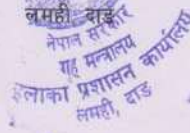 लमही, दाङ
नेपाल सरकार
गृह मन्त्रालय
इलाका प्रशासन कार्यालय
लमही, दाङ